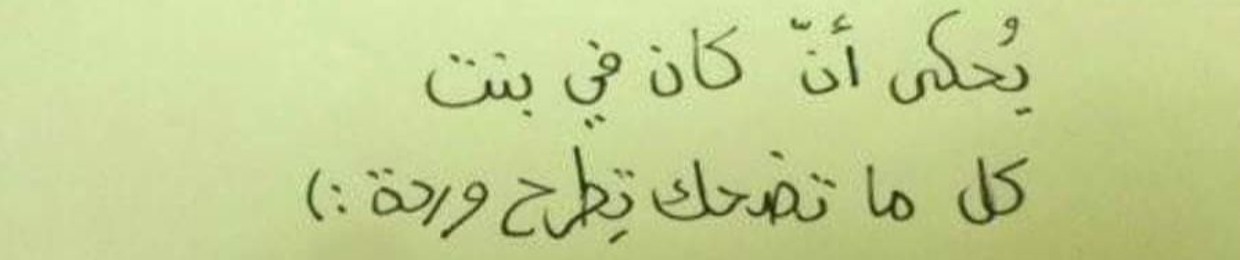 يُحكى أنّ كان في بنت
كل ما تضحك تِطرح وردة :)